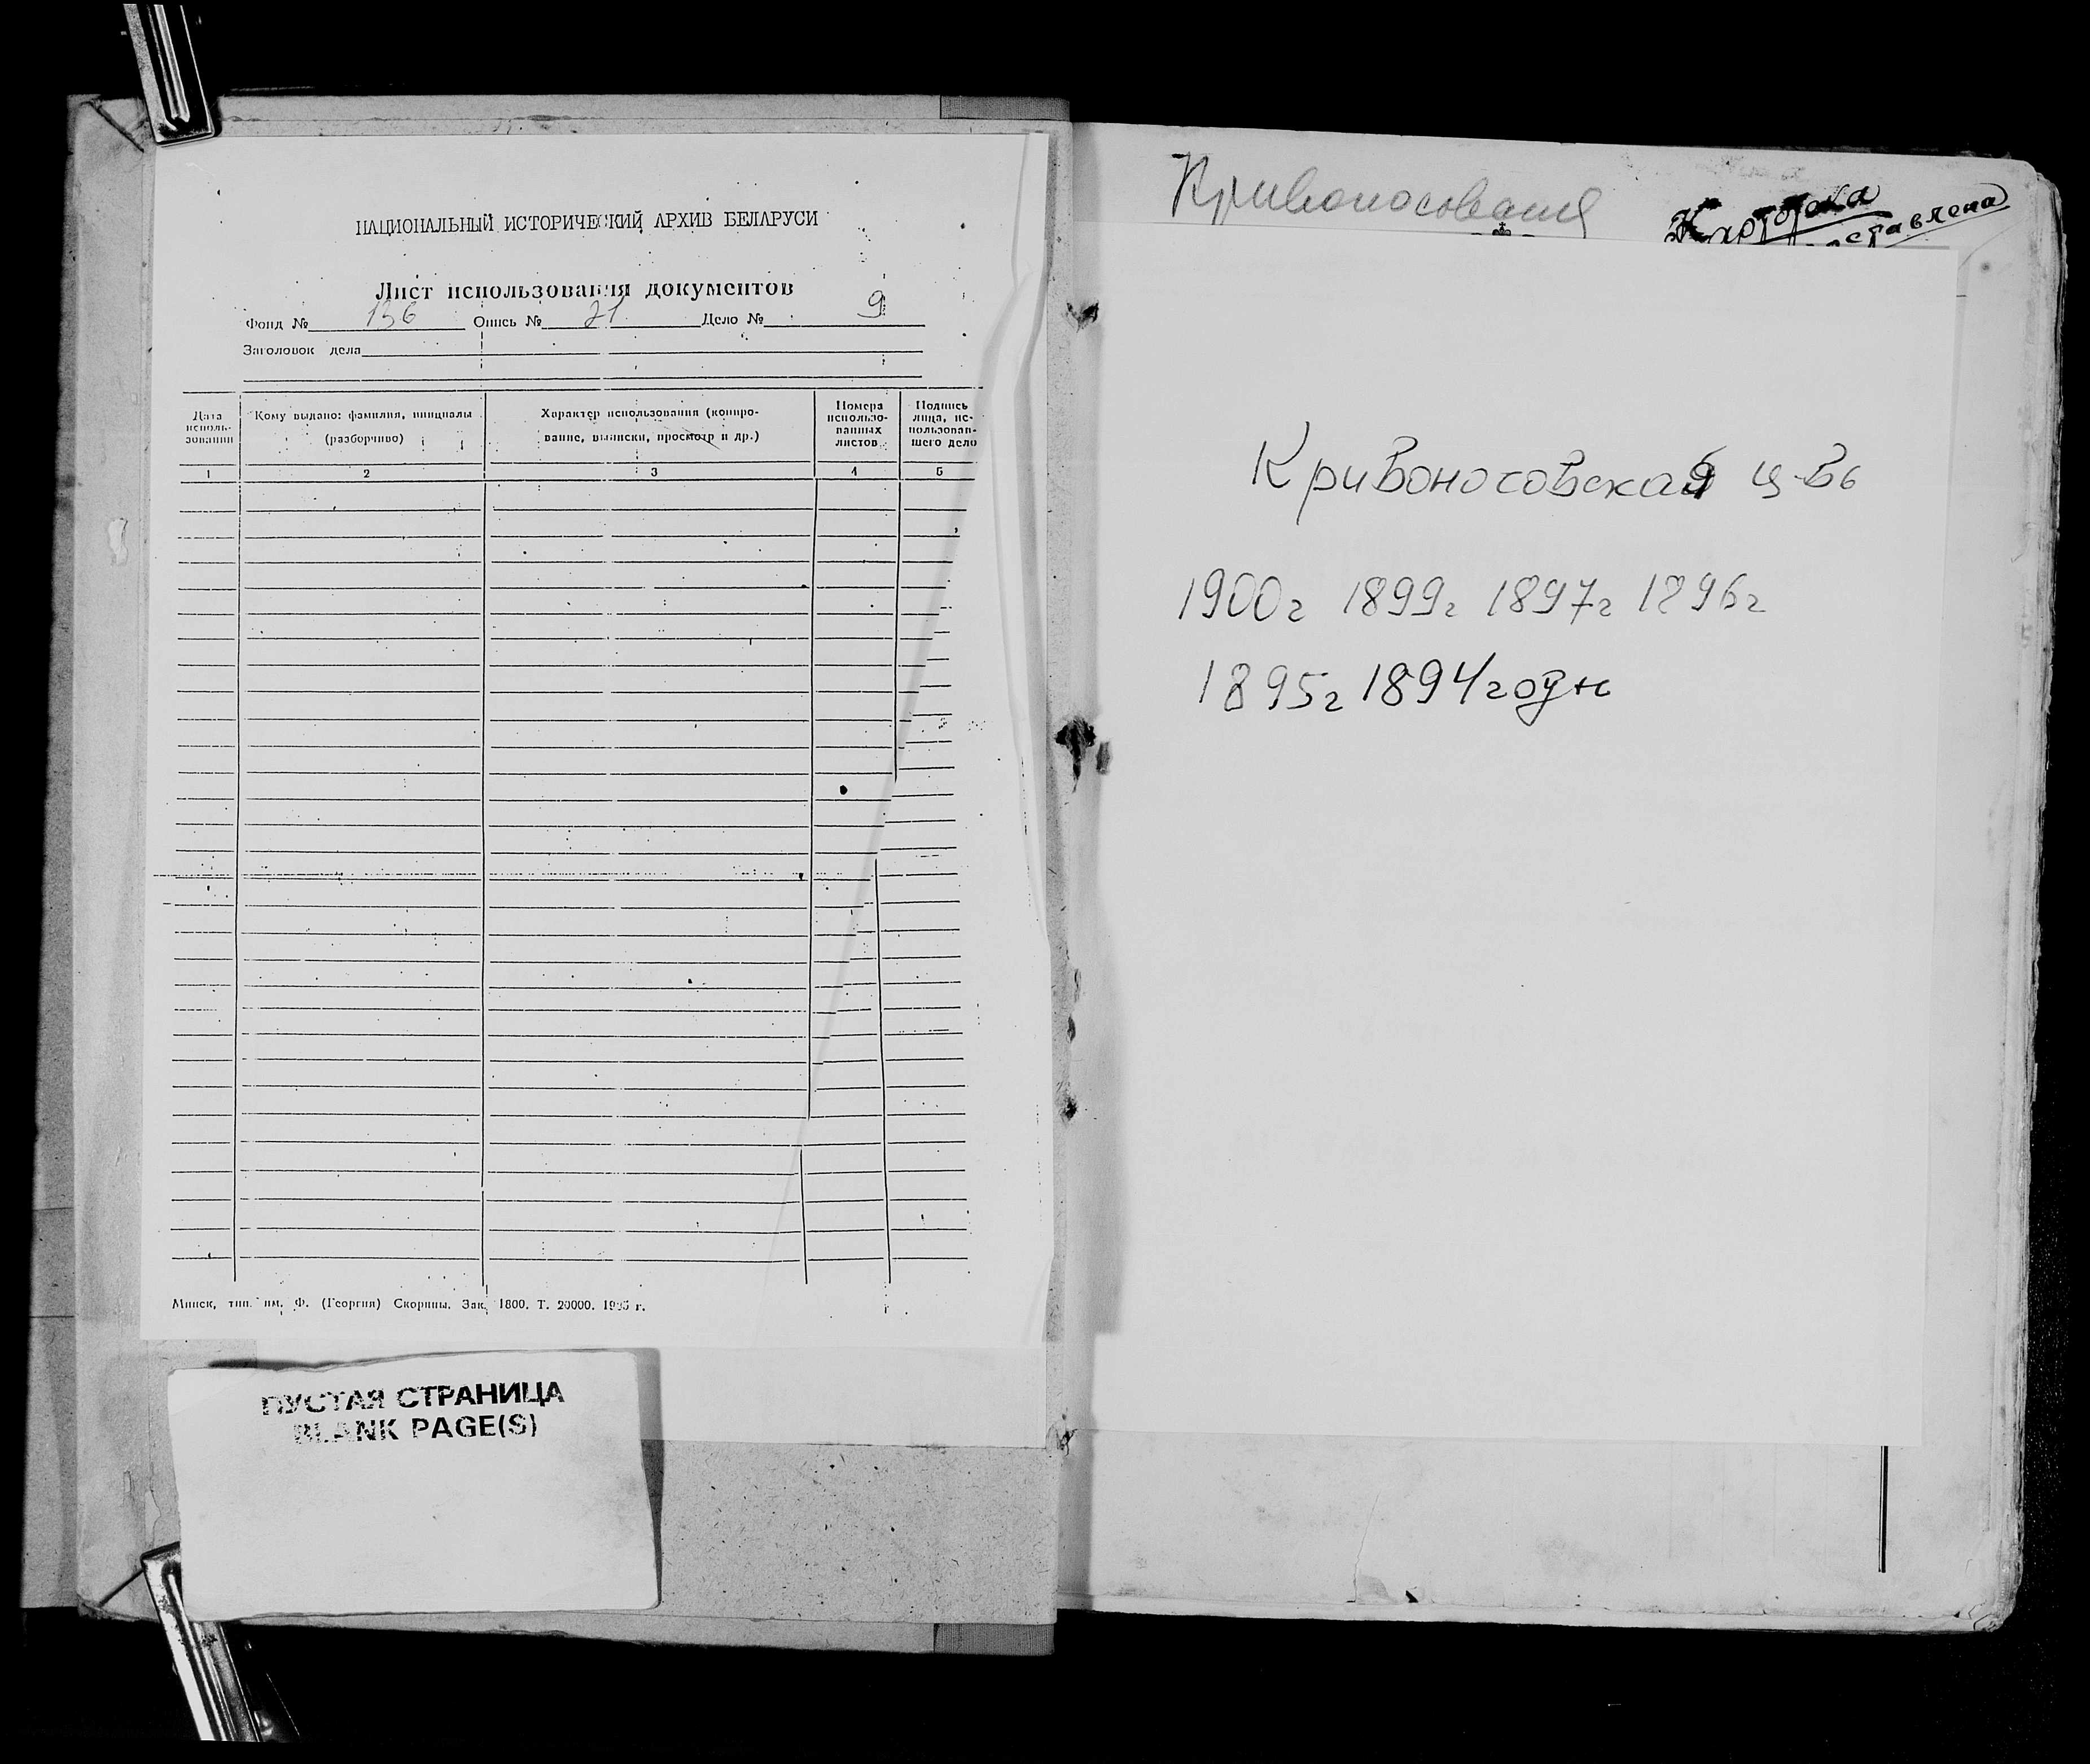 НАЦИОНАЛЬНЫЙ ИСТОРИЧЕСКИЙ АРХИВ БЕЛАРУСИ
Лист использования документов
Фонд № 136 Опись № 21 Дело № 9
Заголовок дела
Дата использования
Кому выдано: фамилия, инициалы (разборчиво)
Характер использования (копирование, выписки, просмотр и др.)
Номера использованных листов
Подпись лица, использовавшего дело
1 2 3 4 5
Минск, тип. им. Ф. (Георгия) Скорины. Зак. 1800. Т. 20000. 1995 г.
ПУСТАЯ СТРАНИЦА
BLANK PAGE(S)
Картотека
составлена
Кривоносовская ц-вь
1900г 1899г 1897г 1896г
1895г 1894годы